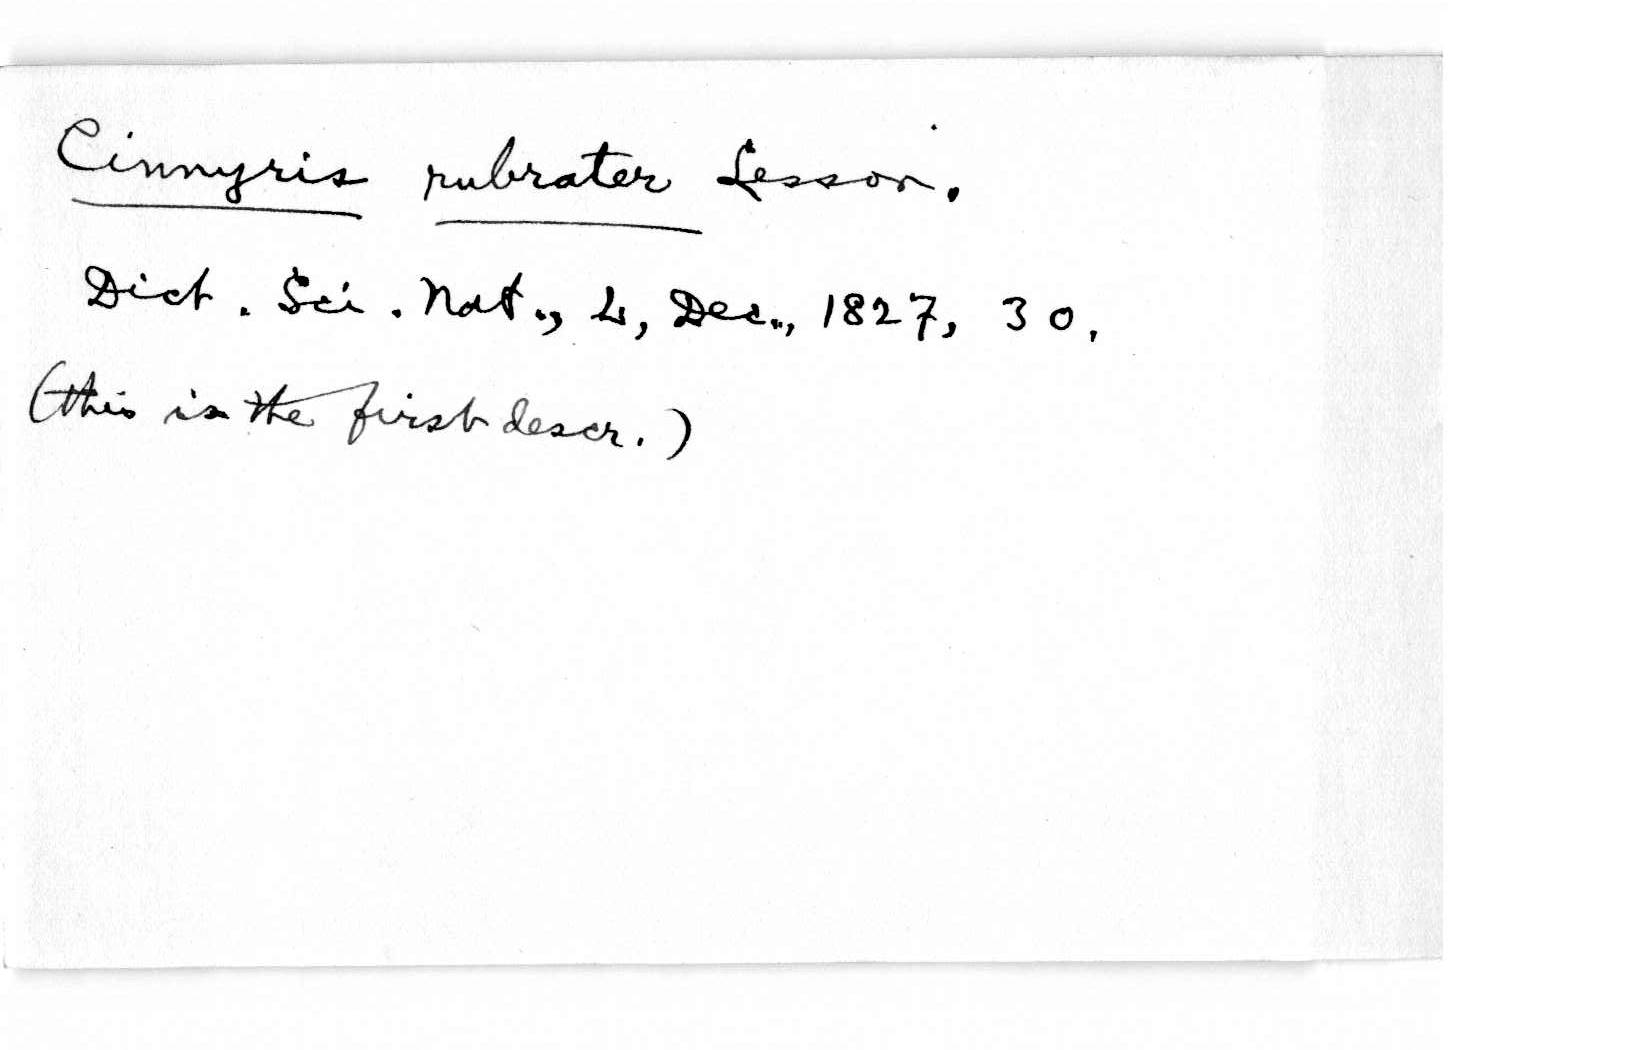 Cinnyris rubrater Lesson.
Dict. Sci. Nat., 4, Dec., 1827, 30.
(this is the first descr.)